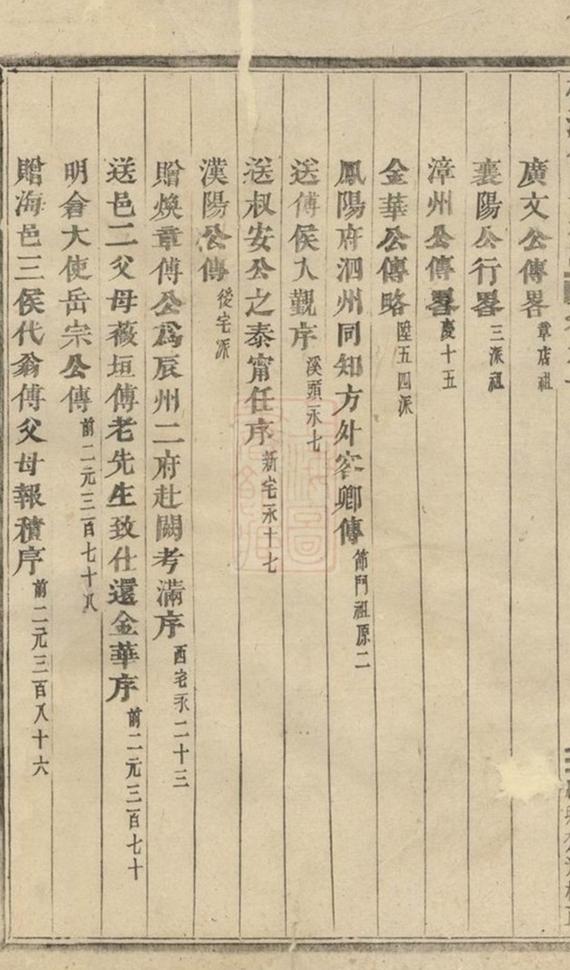 廣文公傳畧 章店祖
襄陽公行畧 三派祖
漳州公傳畧 慶十五
金華公傳略 陞五四派
鳳陽府泗州同知方外客卿傳 節門祖原二
送傅侯入觀序 溪頭永七
送叔安公之泰甯任序 新宅永十七
漢陽公傳 後宅派
贈煥章傅公爲辰州二府赴闕考滿序 西宅永二十三
送邑二父母薇垣傅老先生致仕還金華序 前二元三百七十
明倉大使岳宗公傳 前二元三百七十八
贈海邑三侯代翁傅父母報積序 前二元三百八十六